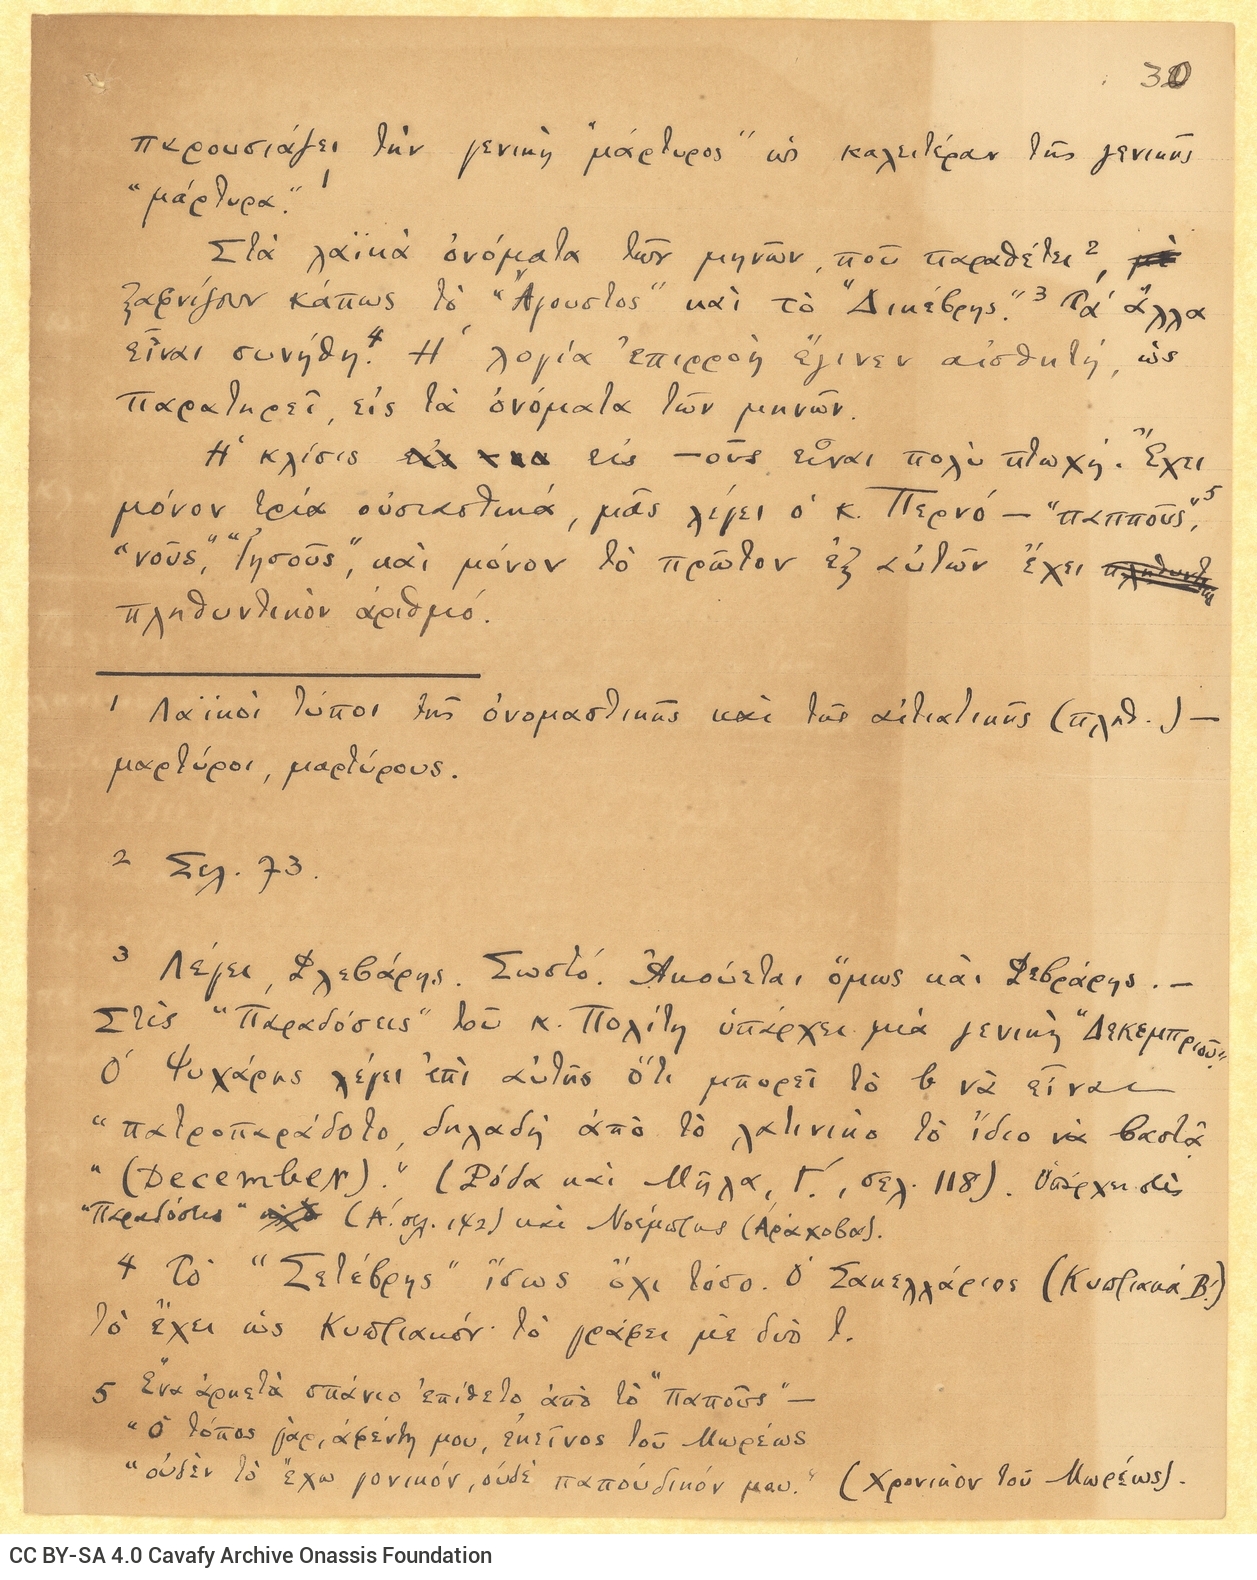 30
παρουσιάζει τὴν γενικὴ "μάρτυρος" ὡς καλειτέραν τῆς γενικῆς
"μάρτυρα." 1
Στὰ λαϊκὰ ὀνόματα τῶν μηνῶν, ποῦ παραθέτει 2, μὲ
ξαφνίζουν κάπως τὸ "Ἄγουστος" καὶ τὸ "Δικέβρης." 3 Τὰ ἄλλα
εἶναι συνήθη. 4 Ἡ λογία ἐπιρροὴ ἔγινεν αἰσθητή, ὡς
παρατηρεῖ, εἰς τὰ ὀνόματα τῶν μηνῶν.
Ἡ κλίσις εἰς —οῦς εἶναι πολὺ πτωχή. Ἔχει
μόνον τρία οὐσιαστικά, μᾶς λέγει ὁ κ. Περνό — "παπποῦς", 5
"νοῦς," "Ἰησοῦς", καὶ μόνον τὸ πρῶτον ἐξ αὐτῶν ἔχει
πληθυντικὸν ἀριθμό.
1 Λαϊκοὶ τύποι τῆς ὀνομαστικῆς καὶ τῆς αἰτιατικῆς (πληθ.) —
μαρτύροι, μαρτύρους.
2 Σελ. 73.
3 Λέγει, Φλεβάρης. Σωστό. Ἀκούεται ὅμως καὶ Φεβράρης. —
Στὲς "Παραδόσεις" τοῦ κ. Πολίτη ὑπάρχει μιὰ γενικὴ "Δεκεμπριοῦ".
Ὁ Ψυχάρης λέγει ἐπὶ αὐτῆς ὅτι μπορεῖ τὸ b νὰ εἶναι
"πατροπαράδοτο, δηλαδὴ ἀπὸ τὸ λατινικὸ τὸ ἴδιο νὰ βαστᾷ
"(December)." (Ρόδα καὶ Μῆλα, Γ΄., σελ. 118). Ὑπάρχει στὲς
"Παραδόσεις" (Α΄. σελ. 142) καὶ Νοέμπρης (Ἀράχοβα).
4 Τὸ "Σετέβρης" ἴσως ὄχι τόσο. Ὁ Σακελλάριος (Κυπριακά Β΄.)
τὸ ἔχει ὡς Κυπριακόν· τὸ γράφει μὲ δυὸ τ.
5 Ἕνα ἀρκετὰ σπάνιο ἐπίθετο ἀπὸ τὸ "παποῦς" —
"Ὁ τόπος γάρ, ἀφέντη μου, ἐκεῖνος τοῦ Μωρέως
"οὐδὲν τὸ ἔχω γονικόν, οὐδὲ παπούδικόν μου." (Χρονικὸν τοῦ Μωρέως).
CC BY-SA 4.0 Cavafy Archive Onassis Foundation